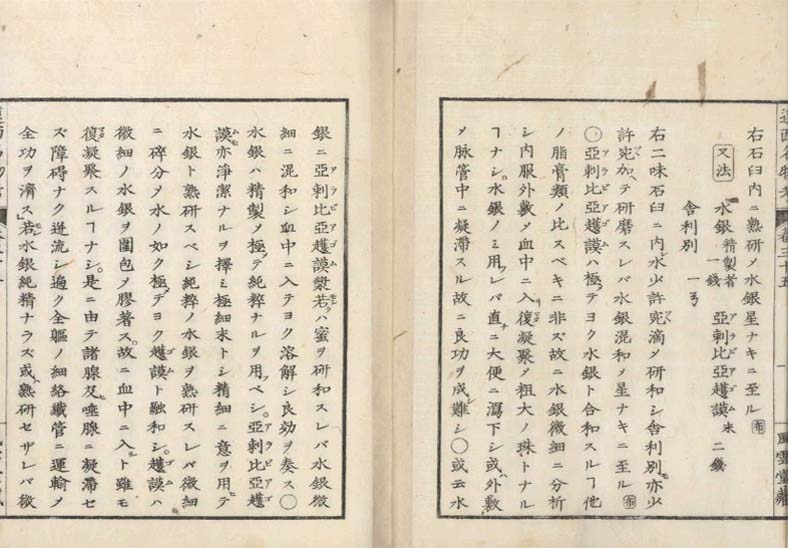 遠西名物考 卷三十五 十 風雲堂藏
右石臼内ニ熟研〆水銀星ナキニ至ル 布
又法 水銀 精製者 一錢 亞剌比亞護謨 末 二錢
舎利別 一ヲ
右二味石臼ニ内レ水少許宛滴〆研和シ舎利別亦少
許宛加ヘテ研磨スレバ水銀混和〆星ナキニ至ル 布
〇亞剌比亞護謨ハ極テヨク水銀ト合和スルヿ他
ノ脂膏類ノ比スベキニ非ズ故ニ水銀微細ニ分析
シ内服外敷〆血中ニ入リ復凝聚〆粗大ノ珠トナル
ヿナシ。水銀ノミ用レバ直ニ大便ニ瀉下シ或ハ外敷
〆脉管中ニ凝滯スル故ニ良功ヲ成難シ〇或云水
銀ニ亞剌比亞護謨漿若クハ蜜ヲ研和スレバ水銀微
細ニ混和シ血中ニ入テヨク溶解シ良効ヲ奏ス〇
水銀ハ精製〆極テ純粹ナルヲ用ベシ。亞剌比亞護
謨亦淨潔ナルヲ擇ミ極細末トシ精細ニ意ヲ用テ
水銀ト熟研スベシ純粹ノ水銀ヲ熟研スレバ微細
ニ碎分〆水ノ如ク極テヨク護謨ト融和シ。護謨ハ
微細ノ水銀ヲ圍包〆膠著ス。故ニ血中ニ入ルト雖モ
復凝聚スルヿナシ。是ニ由テ諸腺及唾腺ニ凝滯セ
ズ障碍ナク迸流シ遍ク全軀ノ細絡纖管ニ運輸〆
全功ヲ濟ス。若水銀純精ナラズ或ハ熟研セザレバ微